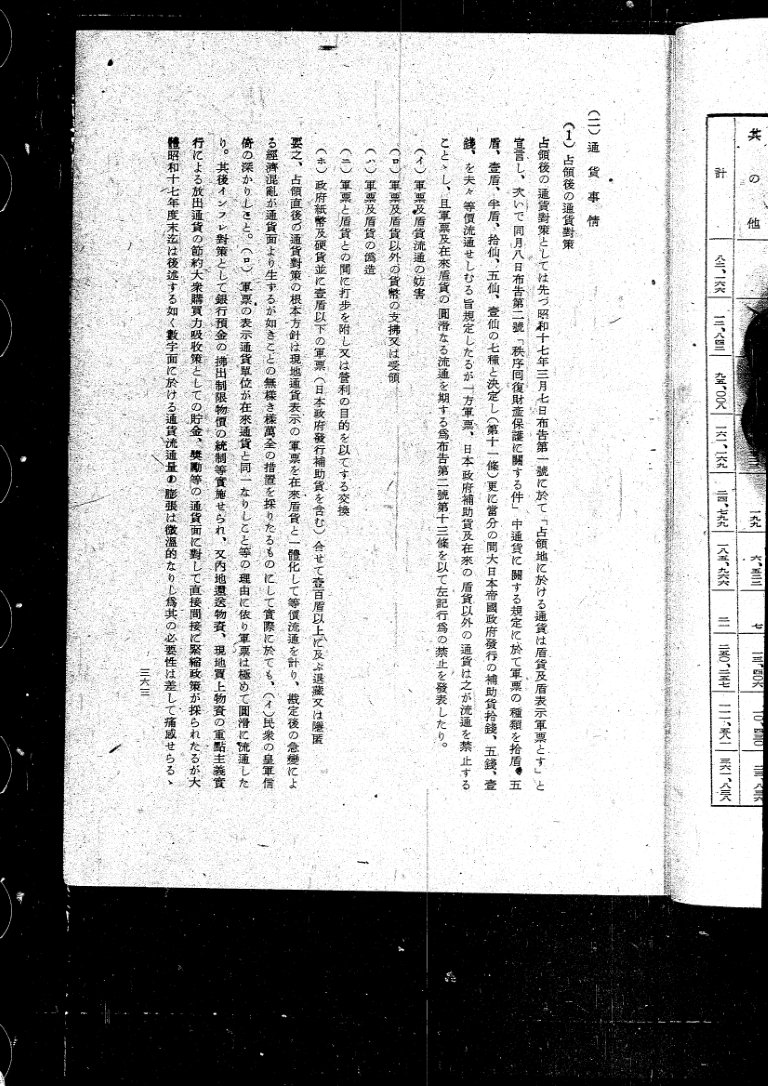 其の他 一九九 六、五二二 七 一三、四〇六 一〇、四三〇 二三、八三六
計 八二、一六六 一二、八四二 九五、〇〇八 一六一、一六九 二四、七九九 一八五、九六六 二一 二五〇、二五七 一一一、五八一 三六一、八三八
(二)通貨事情
(1)占領後の通貨對策
占領後の通貨對策としては先づ昭和十七年三月七日布告第一號に於て「占領地に於ける通貨は盾貨及盾表示軍票とす」と
宣言し、次いで同月八日布告第二號「秩序回復財產保護に關する件」中通貨に關する規定に於て軍票の種類を拾盾、五
盾、壹盾、半盾、拾仙、五仙、壹仙の七種と決定し(第十一條)更に當分の間大日本帝國政府發行の補助貨拾錢、五錢、壹
錢、を夫々等價流通せしむる旨規定したるが一方軍票、日本政府補助貨及在來の盾貨以外の通貨は之が流通を禁止する
ことゝし、且軍票及在來盾貨の圓滑なる流通を期する爲布告第二號第十三條を以て左記行爲の禁止を發表したり。
(イ)軍票及盾貨流通の妨害
(ロ)軍票及盾貨以外の貨幣の支拂又は受領
(ハ)軍票及盾貨の僞造
(ニ)軍票と盾貨との間に打步を附し又は營利の目的を以てする交換
(ホ)政府紙幣及硬貨並に壹盾以下の軍票(日本政府發行補助貨を含む)合せて壹百盾以上に及ぶ退藏又は隱匿
要之、占領直後の通貨對策の根本方針は現地通貨表示の軍票を在來盾貨と一體化して等價流通を計り、戡定後の急變によ
る經濟混亂が通貨面より生ずるが如きことの無樣き樣萬全の措置を採りたるものにして實際に於ても、(イ)民衆の皇軍信
倚の深かりしこと。(ロ)軍票の表示通貨單位が在來通貨と同一なりしこと等の理由に依り軍票は極めて圓滑に流通した
り。其後インフレ對策として銀行預金の拂出制限物價の統制等實施せられ、又內地還送物資、現地買上物資の重點主義實
行による放出通貨の節約大衆購買力吸收策としての貯金、獎勵等の通貨面に對して直接間接に緊縮政策が採られたるが大
體昭和十七年度末迄は後述する如く數字面に於ける通貨流通量の膨張は微溫的なりし爲其の必要性は差して痛感せらるゝ
三六三